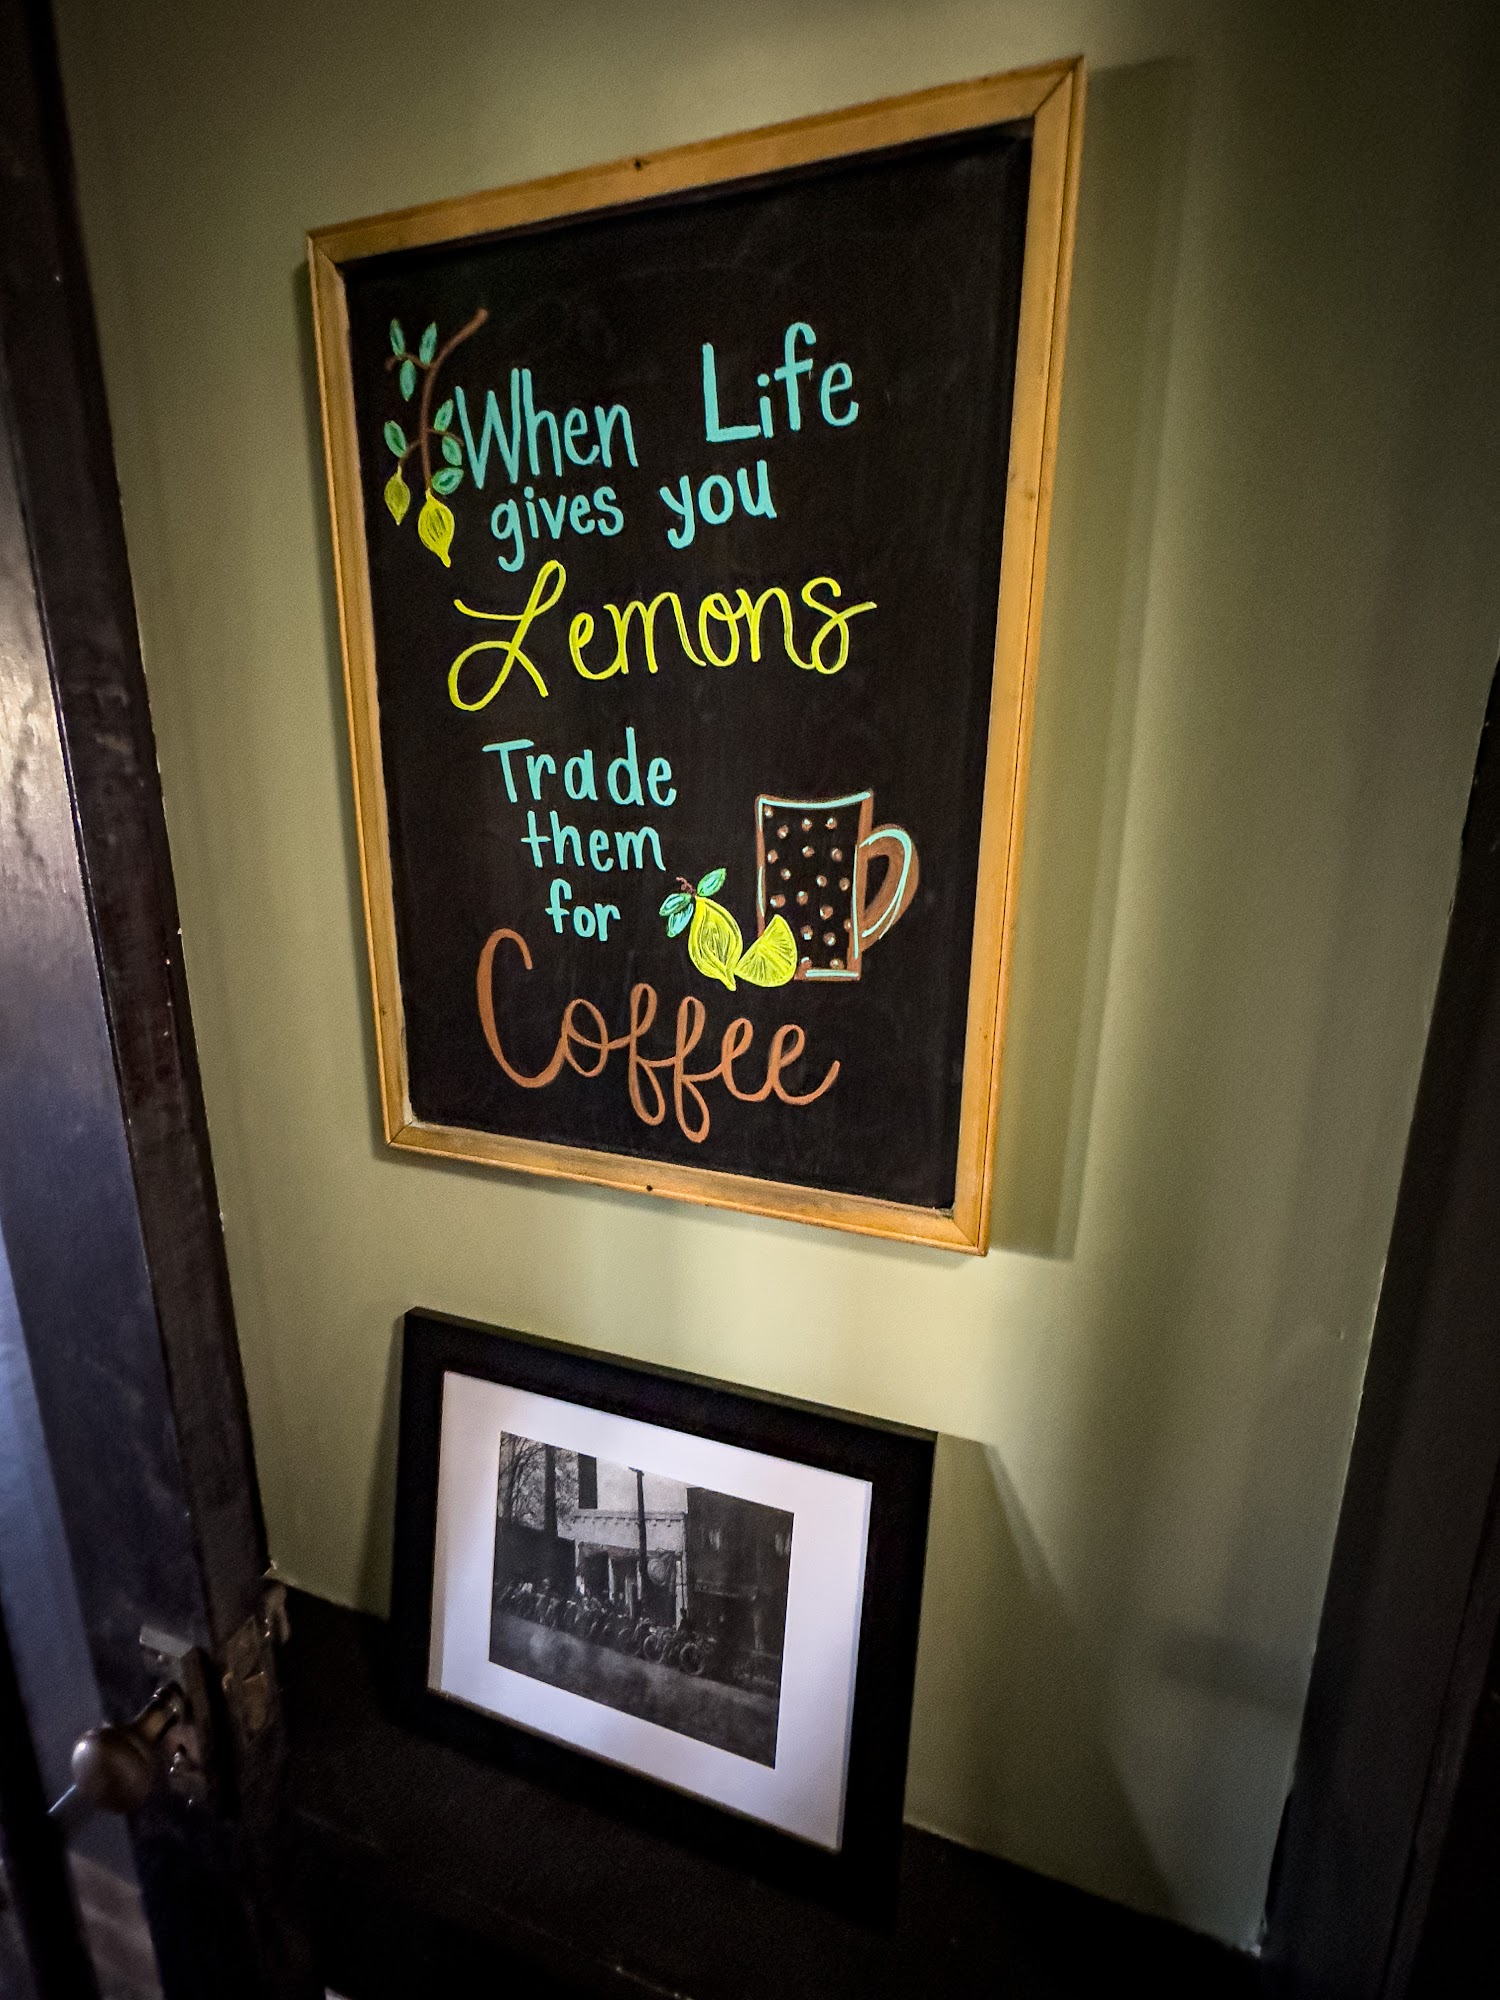 When Life
gives you
Lemons
Trade
them
for
Coffee